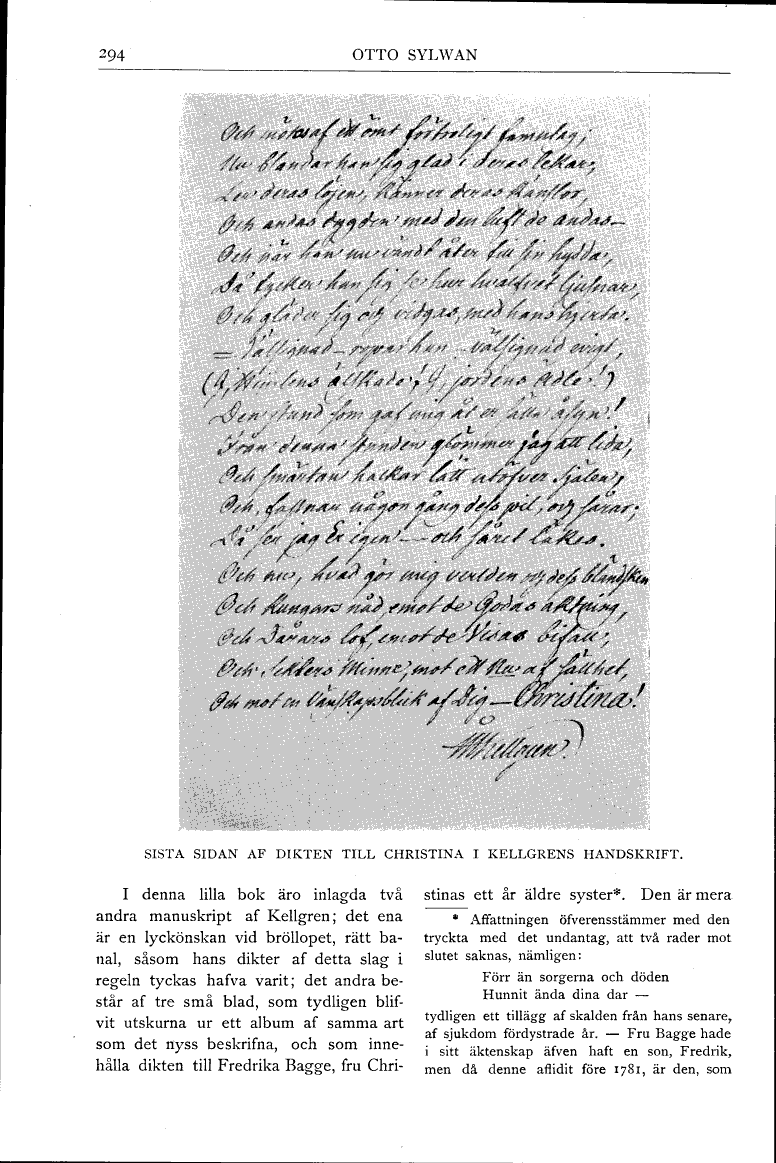 294
OTTO SYLWAN
Och mötes af ett ömt förtroligt famntag;
Nu blandar han sig glad i deras lekar,
Ler deras löjen, känner deras känslor,
Och andas dygden med den luft de andas—
Och när han nu vändt åter till sin hydda,
Då tycker han sig se hur hvalfvet ljusnar,
Och gläder sig och vidgas, med hans hjerta.
= Välsignad – ropar han – välsignad evigt,
(O, Himlens älskade! O, jordens Ädle!)
Den stund som gaf mig åt en sälla åsyn!
Från denna stunden glömmer jag att lida,
Och smärtan halkar lätt utöfver själen,
Och, fastnar någon gång dess pil, och sårar;
Då ser jag Er igen! — och såret läkes.
Och nu, hvad gör mig verlden och dess bländsken
Och Kungars nåd, emot de Godas aktning,
Och Dårars lof, emot de Visas bifall,
Och Seklers Minne, mot ett Nu af sällhet,
Och mot en Vänskapsblick af Dig — Christina!
Kellgren.
SISTA SIDAN AF DIKTEN TILL CHRISTINA I KELLGRENS HANDSKRIFT.
I denna lilla bok äro inlagda två
andra manuskript af Kellgren; det ena
är en lyckönskan vid bröllopet, rätt ba-
nal, såsom hans dikter af detta slag i
regeln tyckas hafva varit; det andra be-
står af tre små blad, som tydligen blif-
vit utskurna ur ett album af samma art
som det nyss beskrifna, och som inne-
hålla dikten till Fredrika Bagge, fru Chri-
stinas ett år äldre syster*. Den är mera
* Affattningen öfverensstämmer med den
tryckta med det undantag, att två rader mot
slutet saknas, nämligen:
Förr än sorgerna och döden
Hunnit ända dina dar —
tydligen ett tillägg af skalden från hans senare,
af sjukdom fördystrade år. — Fru Bagge hade
i sitt äktenskap äfven haft en son, Fredrik,
men då denne aflidit före 1781, är den, som